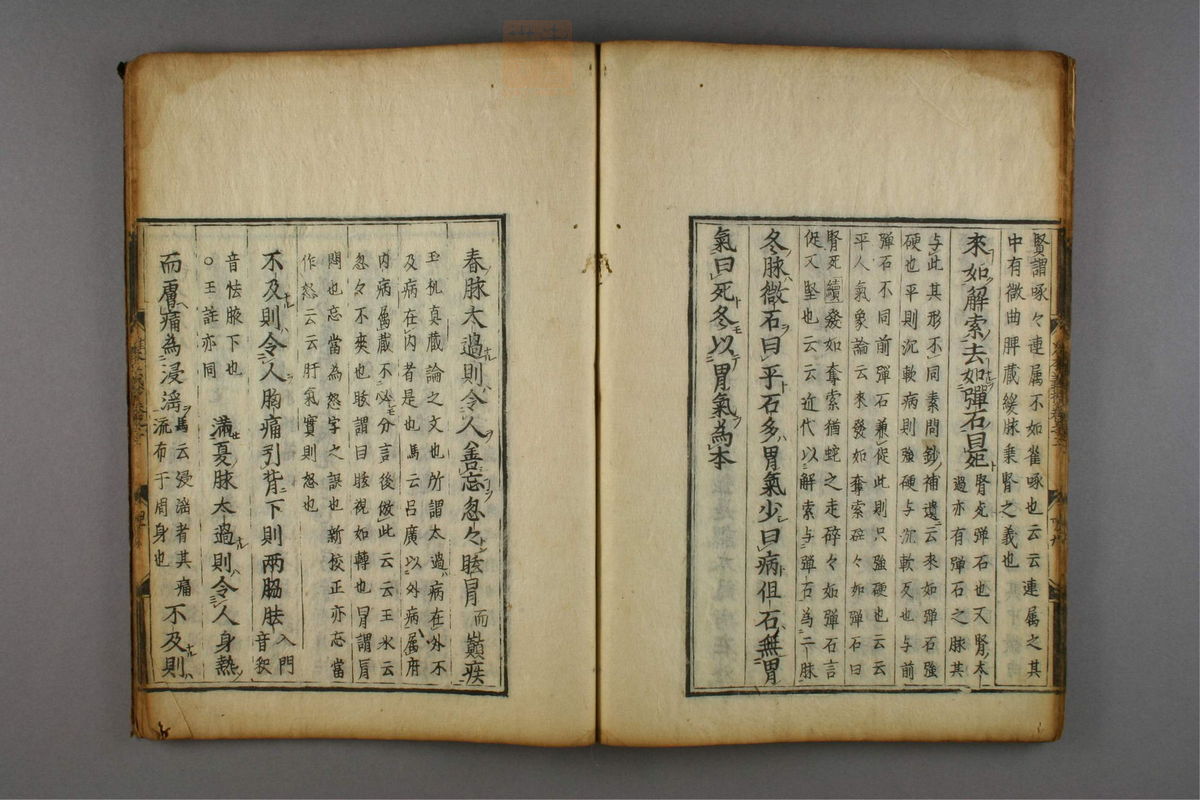 賢謂啄々連属不如雀啄也云云連属之其
中有微曲脾蔵緩脉乗腎之義也
来如解索去如弾石曰死
腎死弾石也又腎本
過亦有弾石之脉其
与此其形不同素問鈔補遺云来如弾石強
硬也平則沉軟病則強硬与沉軟反也与前
弾石不同前弾石兼促此則只強硬也云云
平人気象論云来発如奪索砕々如弾石曰
腎死續発如奪索猶蛇之走砕々如弾石言
促又堅也云云近代以解索与弾石為二脉
冬脉微石曰平石多胃氣少曰病但石無胃
氣曰死冬以胃氣為本
春脉太過則令人善忘忽々眩冒而巓疾
玉机真蔵論之文也所謂太過病在外不
及病在内者是也馬云呂廣以外病属府
内病属蔵不必分言後倣此云云王氷云
忽々不爽也眩謂目眩視如轉也冒謂冐
悶也忘當為怒字之誤也新校正亦忘當
作怒云云肝氣實則怒也
不及則令人胸痛引背下則両脇胠
入門
音釈
音怯腋下也
○王註亦同
滿夏脉太過則令人身熱
而膚痛為浸淫
馬云浸淫者其痛
流布于周身也
不及則